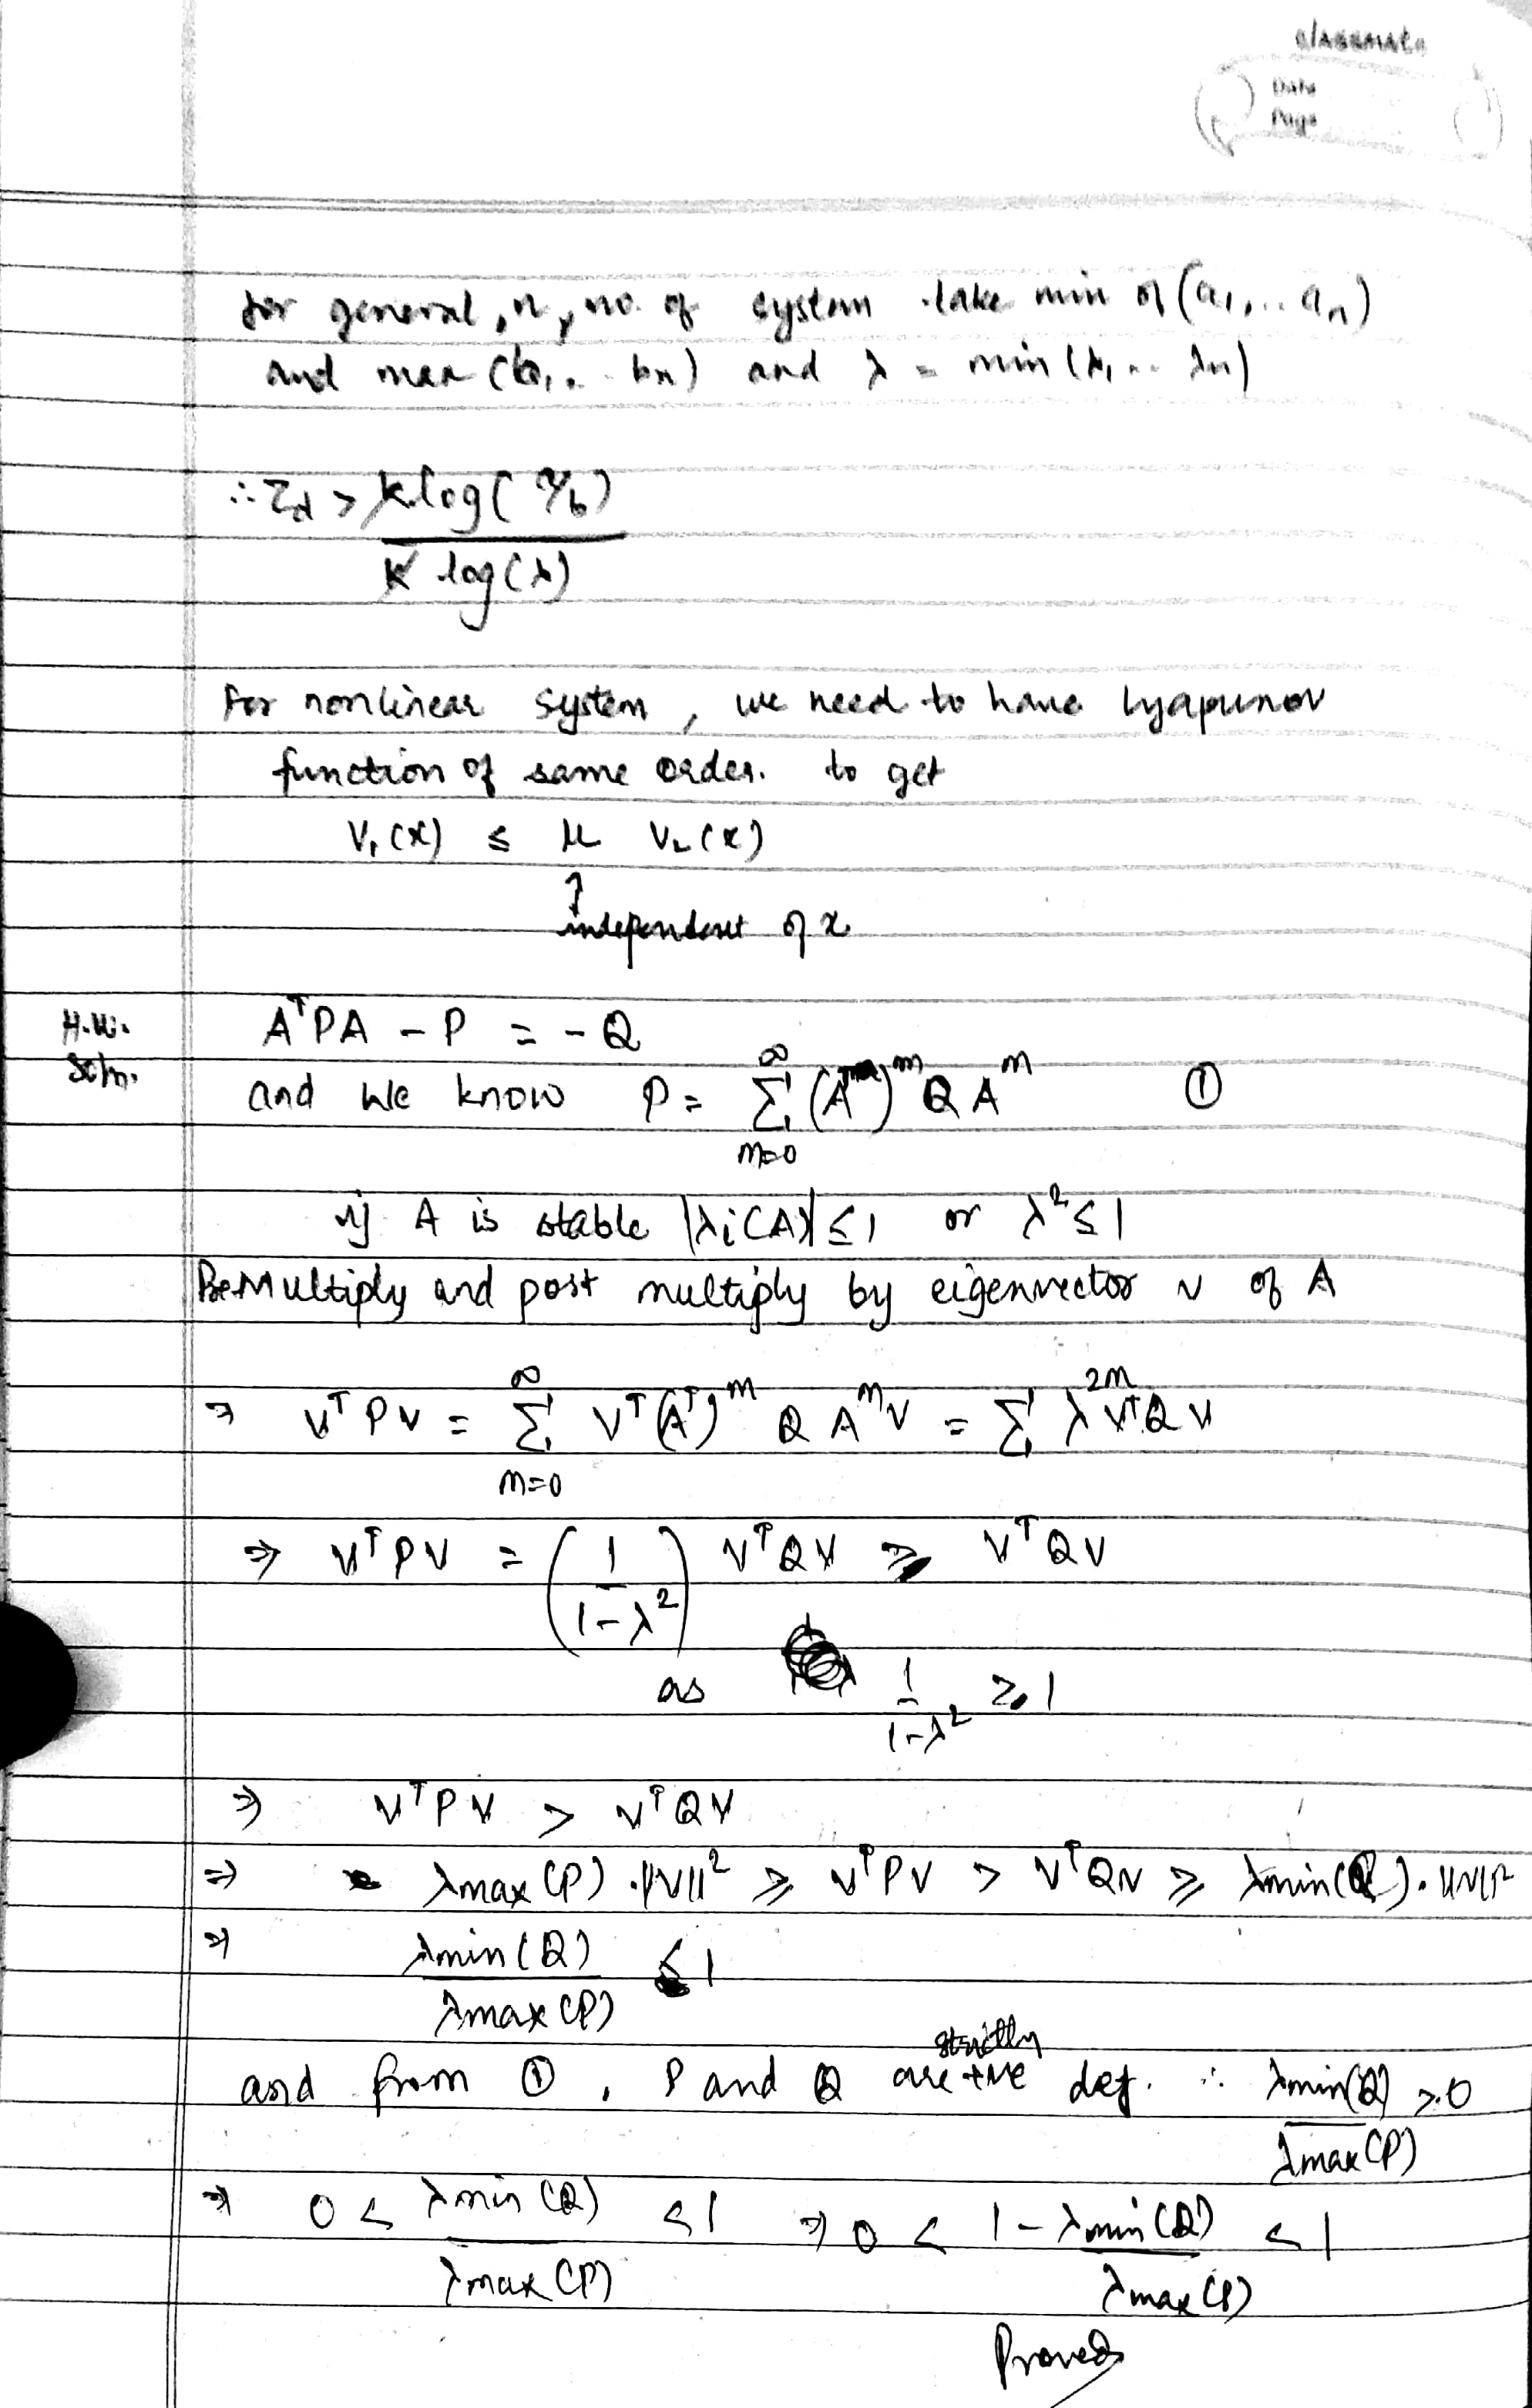 classmate
Date
Page
for general, n, no. of system take min of (a₁, .. aₙ)
and max (b₁, .. bn) and λ = min (λ₁ .. λn)
∴ τd > K log( a/b ) / K log(λ)
For nonlinear system, we need to have lyapunov
function of same order. to get
V₁(x) ≤ μ V₂(x)
↑
independent of x
H.W. Soln.
AᵀPA - P = - Q
and we know P = ∑_{m=0}^{∞} (Aᵀ)^m Q A^m ①
if A is stable |λi(A)| ≤ 1 or λ² ≤ 1
PreMultiply and post multiply by eigenvector v of A
⇒ vᵀPv = ∑_{m=0}^{∞} vᵀ(Aᵀ)^m Q A^m v = ∑ λ^{2m} vᵀQv
⇒ vᵀPv = (1 / (1-λ²)) vᵀQv ≥ vᵀQv
as 1 / (1-λ²) ≥ 1
⇒ vᵀPv > vᵀQv
⇒ λmax(P) · ||v||² ≥ vᵀPv > vᵀQv ≥ λmin(Q) · ||v||²
⇒ λmin(Q) / λmax(P) ≤ 1
and from ①, P and Q are strictly +ve def. ∴ λmin(Q) / λmax(P) > 0
⇒ 0 < λmin(Q) / λmax(P) < 1 ⇒ 0 < 1 - λmin(Q) / λmax(P) < 1
Proved